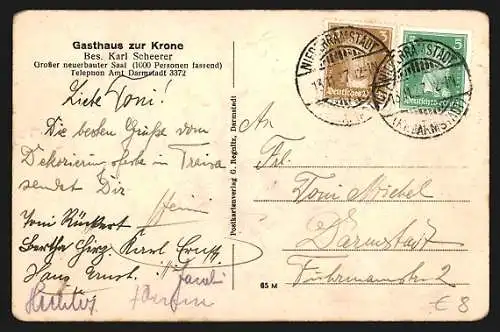 Gasthaus zur Krone
Bes. Karl Scheerer
Großer neuerbauter Saal (1000 Personen fassend)
Telephon Amt Darmstadt 3372
Liebe Toni!
Die besten Grüße vom
in Traisa
sendet Dir
Toni Rückert
Karl Ernst
Hans Ernst
Jacob
Postkartenverlag G. Regnitz, Darmstadt
65 M
NIEDER-RAMSTADT
3
Deutsches
NIEDER-RAMSTADT
5
Deutsches
An
Frl.
Toni Michel
Darmstadt
Fuhrmannstr. 2
€ 8